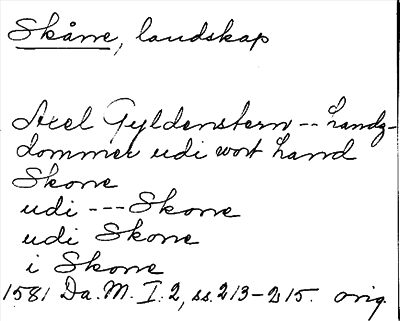 Skåne, landskap
Axel Gyldenstern -- landz-
dommer udi wort land
Skone
udi --- Skone
udi Skone
i Skone
1581 Da. M. I. 2, ss. 213-215. orig.